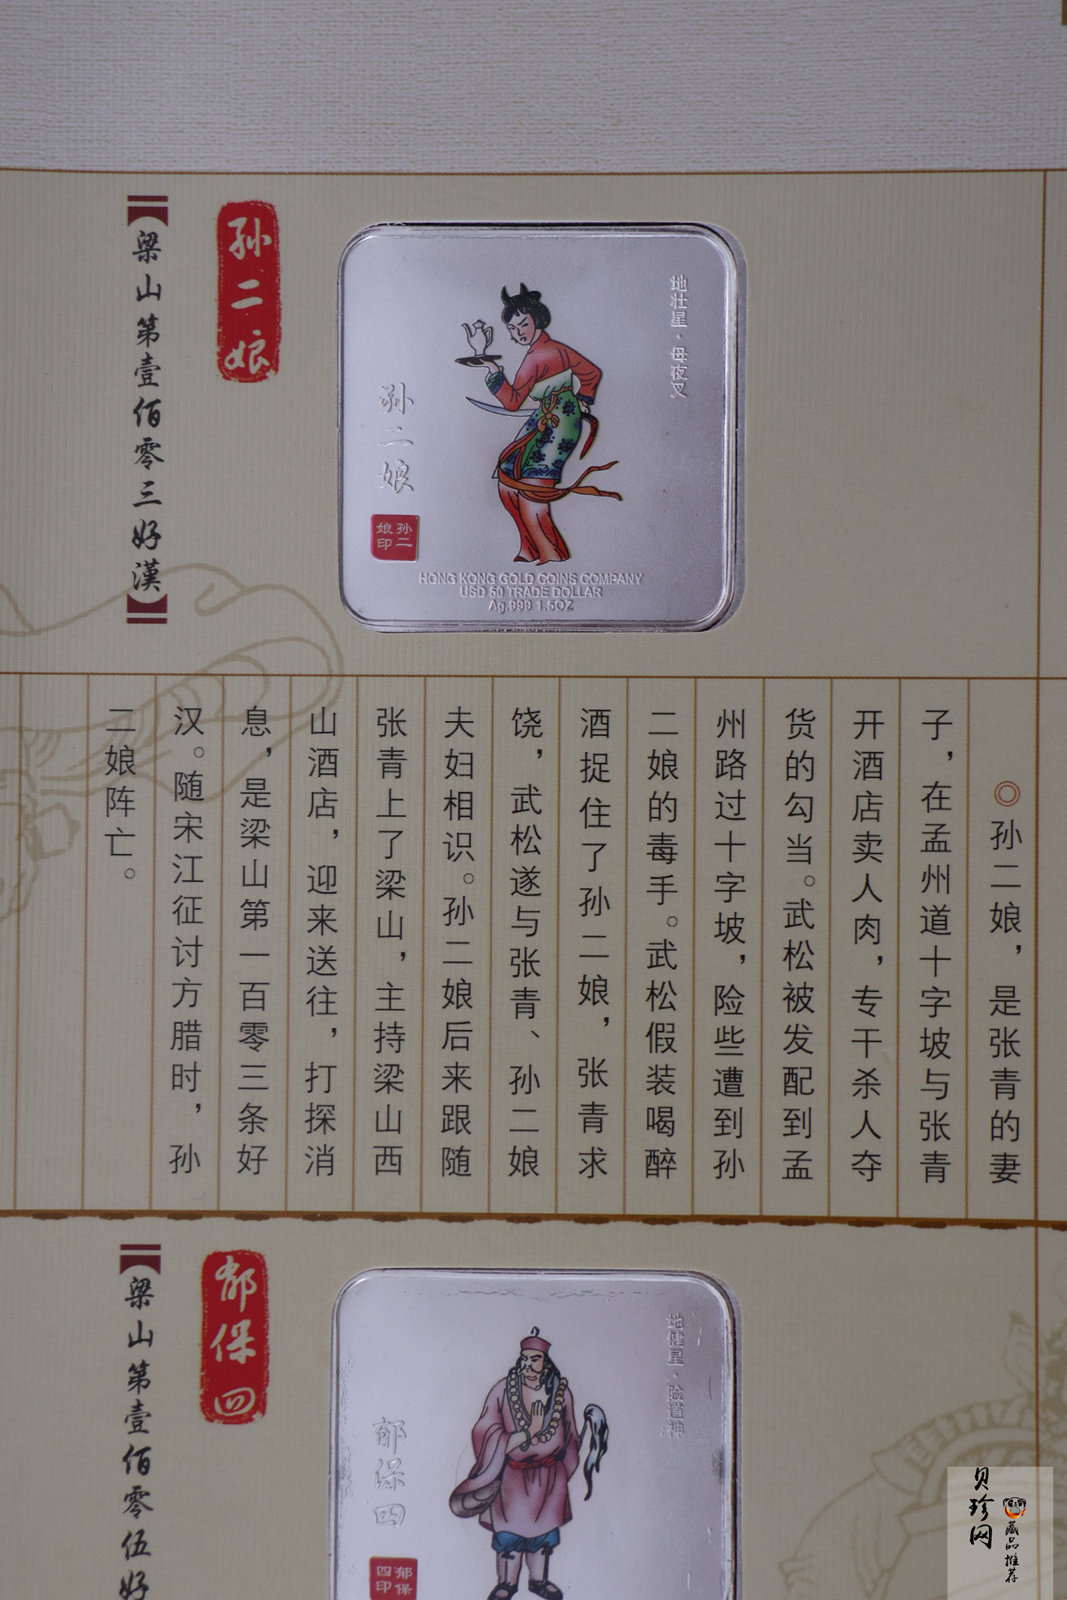 孙二娘
【梁山第壹佰零三好漢】
地壮星·母夜叉
孙二娘
孙二
娘印
HONG KONG GOLD COINS COMPANY
USD 50 TRADE DOLLAR
Ag.999 1.5OZ
◎孙二娘，是张青的妻
子，在孟州道十字坡与张青
开酒店卖人肉，专干杀人夺
货的勾当。武松被发配到孟
州路过十字坡，险些遭到孙
二娘的毒手。武松假装喝醉
酒捉住了孙二娘，张青求
饶，武松遂与张青、孙二娘
夫妇相识。孙二娘后来跟随
张青上了梁山，主持梁山西
山酒店，迎来送往，打探消
息，是梁山第一百零三条好
汉。随宋江征讨方腊时，孙
二娘阵亡。
郁保四
【梁山第壹佰零伍好
地健星·险道神
郁保四
郁保
四印
贝珍网
藏品推荐